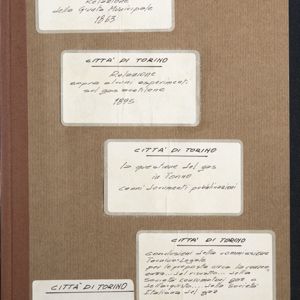 Relazione
della Giunta Municipale
1863
CITTÀ DI TORINO
Relazione
sopra alcuni esperimenti
sul gas acetilene
1895
CITTÀ DI TORINO
La questione del gas
in Torino
cenni documenti pubblicazioni
CITTÀ DI TORINO
Conclusioni della commissione
Tecnico-Legale
per le proposte circa la
del riscatto della
Società Consumatori gas e
della Società
Italiana del gas
CITTÀ DI TORINO